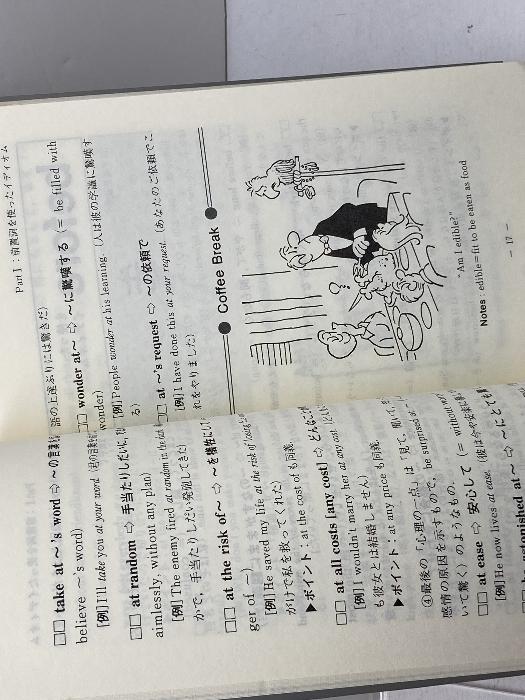 □□ take at ~'s word ⇨ ~の言葉
believe ~'s word)
[例] I'll take you at your word.
□□ at random ⇨ 手当たりしだいに
aimlessly, without any plan)
[例] The enemy fired at random in the dark
かで,手当たりしだい発砲してきた)
□□ at the risk of ~ ⇨ ~を犠牲にして
ger of ~)
[例] He saved my life at the risk of
がけで私を救ってくれた)
▶ポイント:at the cost of も同義.
□□ at all costs [any cost] ⇨ どんな
[例] I wouldn't marry her at any cost.
も彼女とは結婚しません)
▶ポイント:at any price も同義.
④最後の「心理の一点」は「見て,聞いて,
感情の原因を示すもので, be surprised at
いて驚く)のようなもの.
□□ at ease ⇨ 安心して (= without
[例] He now lives at ease. (彼は今や安楽に
astonished at ~ ⇨ ~にとても
Part I:前置詞を使ったイディオム
語の上達ぶりには驚きだ)
□□ wonder at ~ ⇨ ~に驚嘆する (= be filled with
wonder)
[例] People wonder at his learning. (人は彼の学識に驚嘆す
る)
□□ at ~'s request ⇨ ~の依頼で
[例] I have done this at your request. (あなたのご依頼でこ
れをやりました)
Coffee Break
?
"Am I edible?"
Notes : edible=fit to be eaten as food
- 17 -